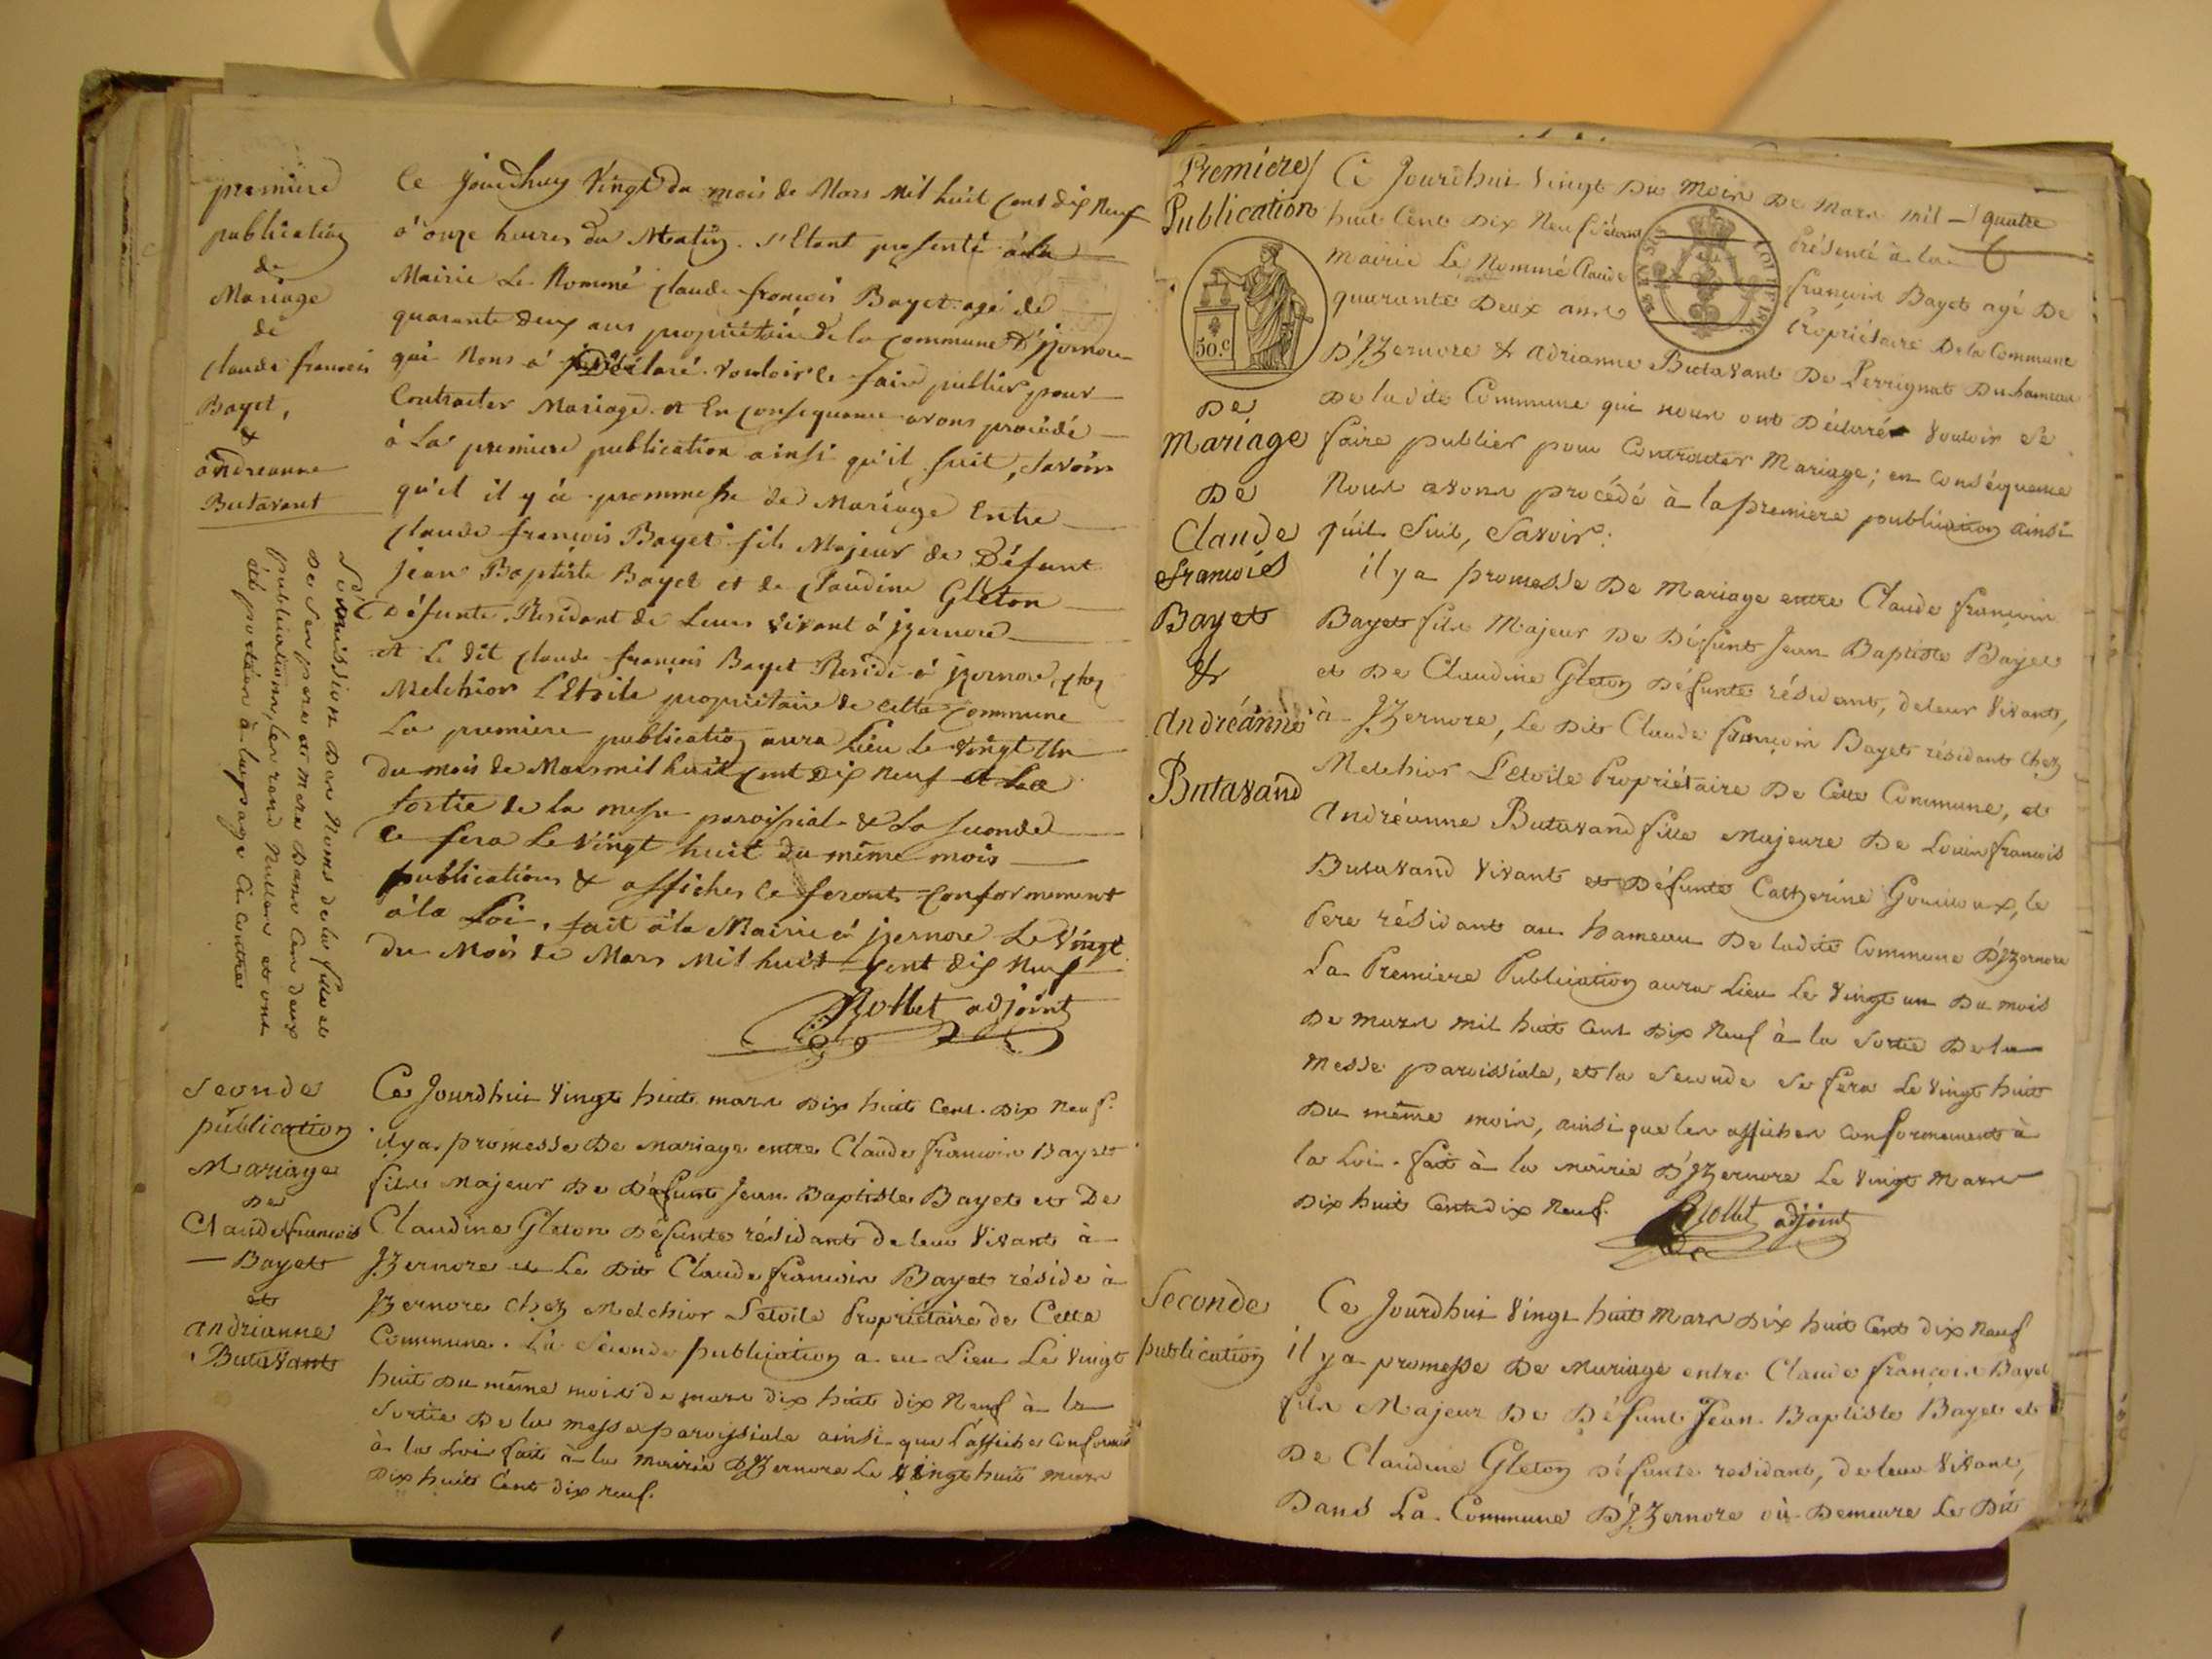 premiere
publication
de
Mariage
de
Claude francois
Bayet,
&
andreanne
Butavant
Ce Jourdhuy Vingt du mois de Mars Mil huit Cent dix Neuf
à onze heures du Matin. s'Etant presenté à la
Mairie Le Nommé Claude francois Bayet agé de
quarante deux ans propriétaire de la Commune d'jzernore
qui Nous à Déclaré Vouloir ce faire publier pour
Contracter Mariage. et En Consequance avons procédé
à La premiere publication ainsi qu'il suit, Savoir
qu'il il y à prommesse de Mariage Entre
Claude francois Bayet fils Majeur de Défunt
jean Baptiste Bayet et de Claudine Gleton
Défunte Residant de Leurs Vivant à jzernore
et Le dit Claude francois Bayet Reside à jzernore, chez
Melchior L'Etoile propriétaire de cette Commune
La premiere publication aura Lieu Le Vingt Un
du mois de Mars mil huit Cent dix Neuf et La
sortie de la messe paroissial & La seconde
ce fera Le Vingt huit du même mois
publications & affiches ce feront Conformement
à la Loi. fait à la Mairie à jzernore Le Vingt
du Mois de Mars Mil huit Cent dix Neuf
Rollet adjoint
L'omission des Noms de la fille et
de ses pere et Mere dans ces deux
publications, les rend Nulles et ont
été portées à la page ci contre
Seconde
publication
Mariage
De
Claude francois
Bayet
et
andrianne
Butavant
Ce Jourdhui Vingt huit mars Dix huit Cent Dix Neuf.
il y a promesse De Mariage entre Claude francois Bayet
fils Majeur De Défunt Jean Baptiste Bayet et De
Claudine Gleton Défunte résidant de leur Vivant à
JZernore et Le Dit Claude francois Bayet réside à
JZernore Chez Melchior L'etoile Propriétaire de Cette
Commune. La Seconde publication a eu Lieu Le Vingt
huit Du même mois de mars dix huit dix Neuf à la
Sortie De la messe paroissiale ainsi que L'affiche Conformt
à la Loi fait à la Mairie D'JZernore Le Vingt huit mars
Dix huit Cent dix neuf.
Premiere
Publication
50.c
De
Mariage
De
Claude
francois
Bayet
&
Andréanne
Butavand
Ce Jourdhui Vingt Du Mois De Mars mil quatre
huit Cent Dix Neuf s'étant Présenté à la
Mairie Le Nommé Claude francois Bayet agé De
quarante Deux ans Propriétaire De la Commune
D'JZernore & adrianne Butavant De Perrignat Du hameau
De la dite Commune qui nous ont Déclaré Vouloir se
faire publier pour Contracter Mariage; en Conséquence
Nous avons procédé à la premiere publication ainsi
qu'il Suit, Savoir:
il y a promesse De Mariage entre Claude francois
Bayet fils Majeur De Défunt Jean Baptiste Bayet
et De Claudine Gleton Défunte résidant, de leur Vivant,
à JZernore, Le Dit Claude francois Bayet résidant Chez
Melchior L'Etoile Propriétaire De Cette Commune, et
Andréanne Butavand fille Majeure De Louis francois
Butavand Vivant et Défunte Catherine Gouilloux, le
Pere résidant au hameau De ladite Commune D'JZernore
La Premiere Publication aura Lieu Le Vingt un Du mois
De mars mil huit Cent Dix Neuf à la Sortie De la
Messe paroissiale, et la Seconde Se fera Le Vingt huit
Du même mois, ainsi que les affiches Conformement à
la Loi. fait à la Mairie D'JZernore Le Vingt Mars
Dix huit Cent dix Neuf. Rollet adjoint
Seconde
publication
Ce Jourdhui Vingt huit Mars Dix huit Cent dix Neuf
il y a promesse De Mariage entre Claude francois Bayet
fils Majeur De Défunt Jean Baptiste Bayet et
De Claudine Gleton Défunte residant, de leur Vivant,
Dans La Commune D'JZernore où Demeure Le Dit